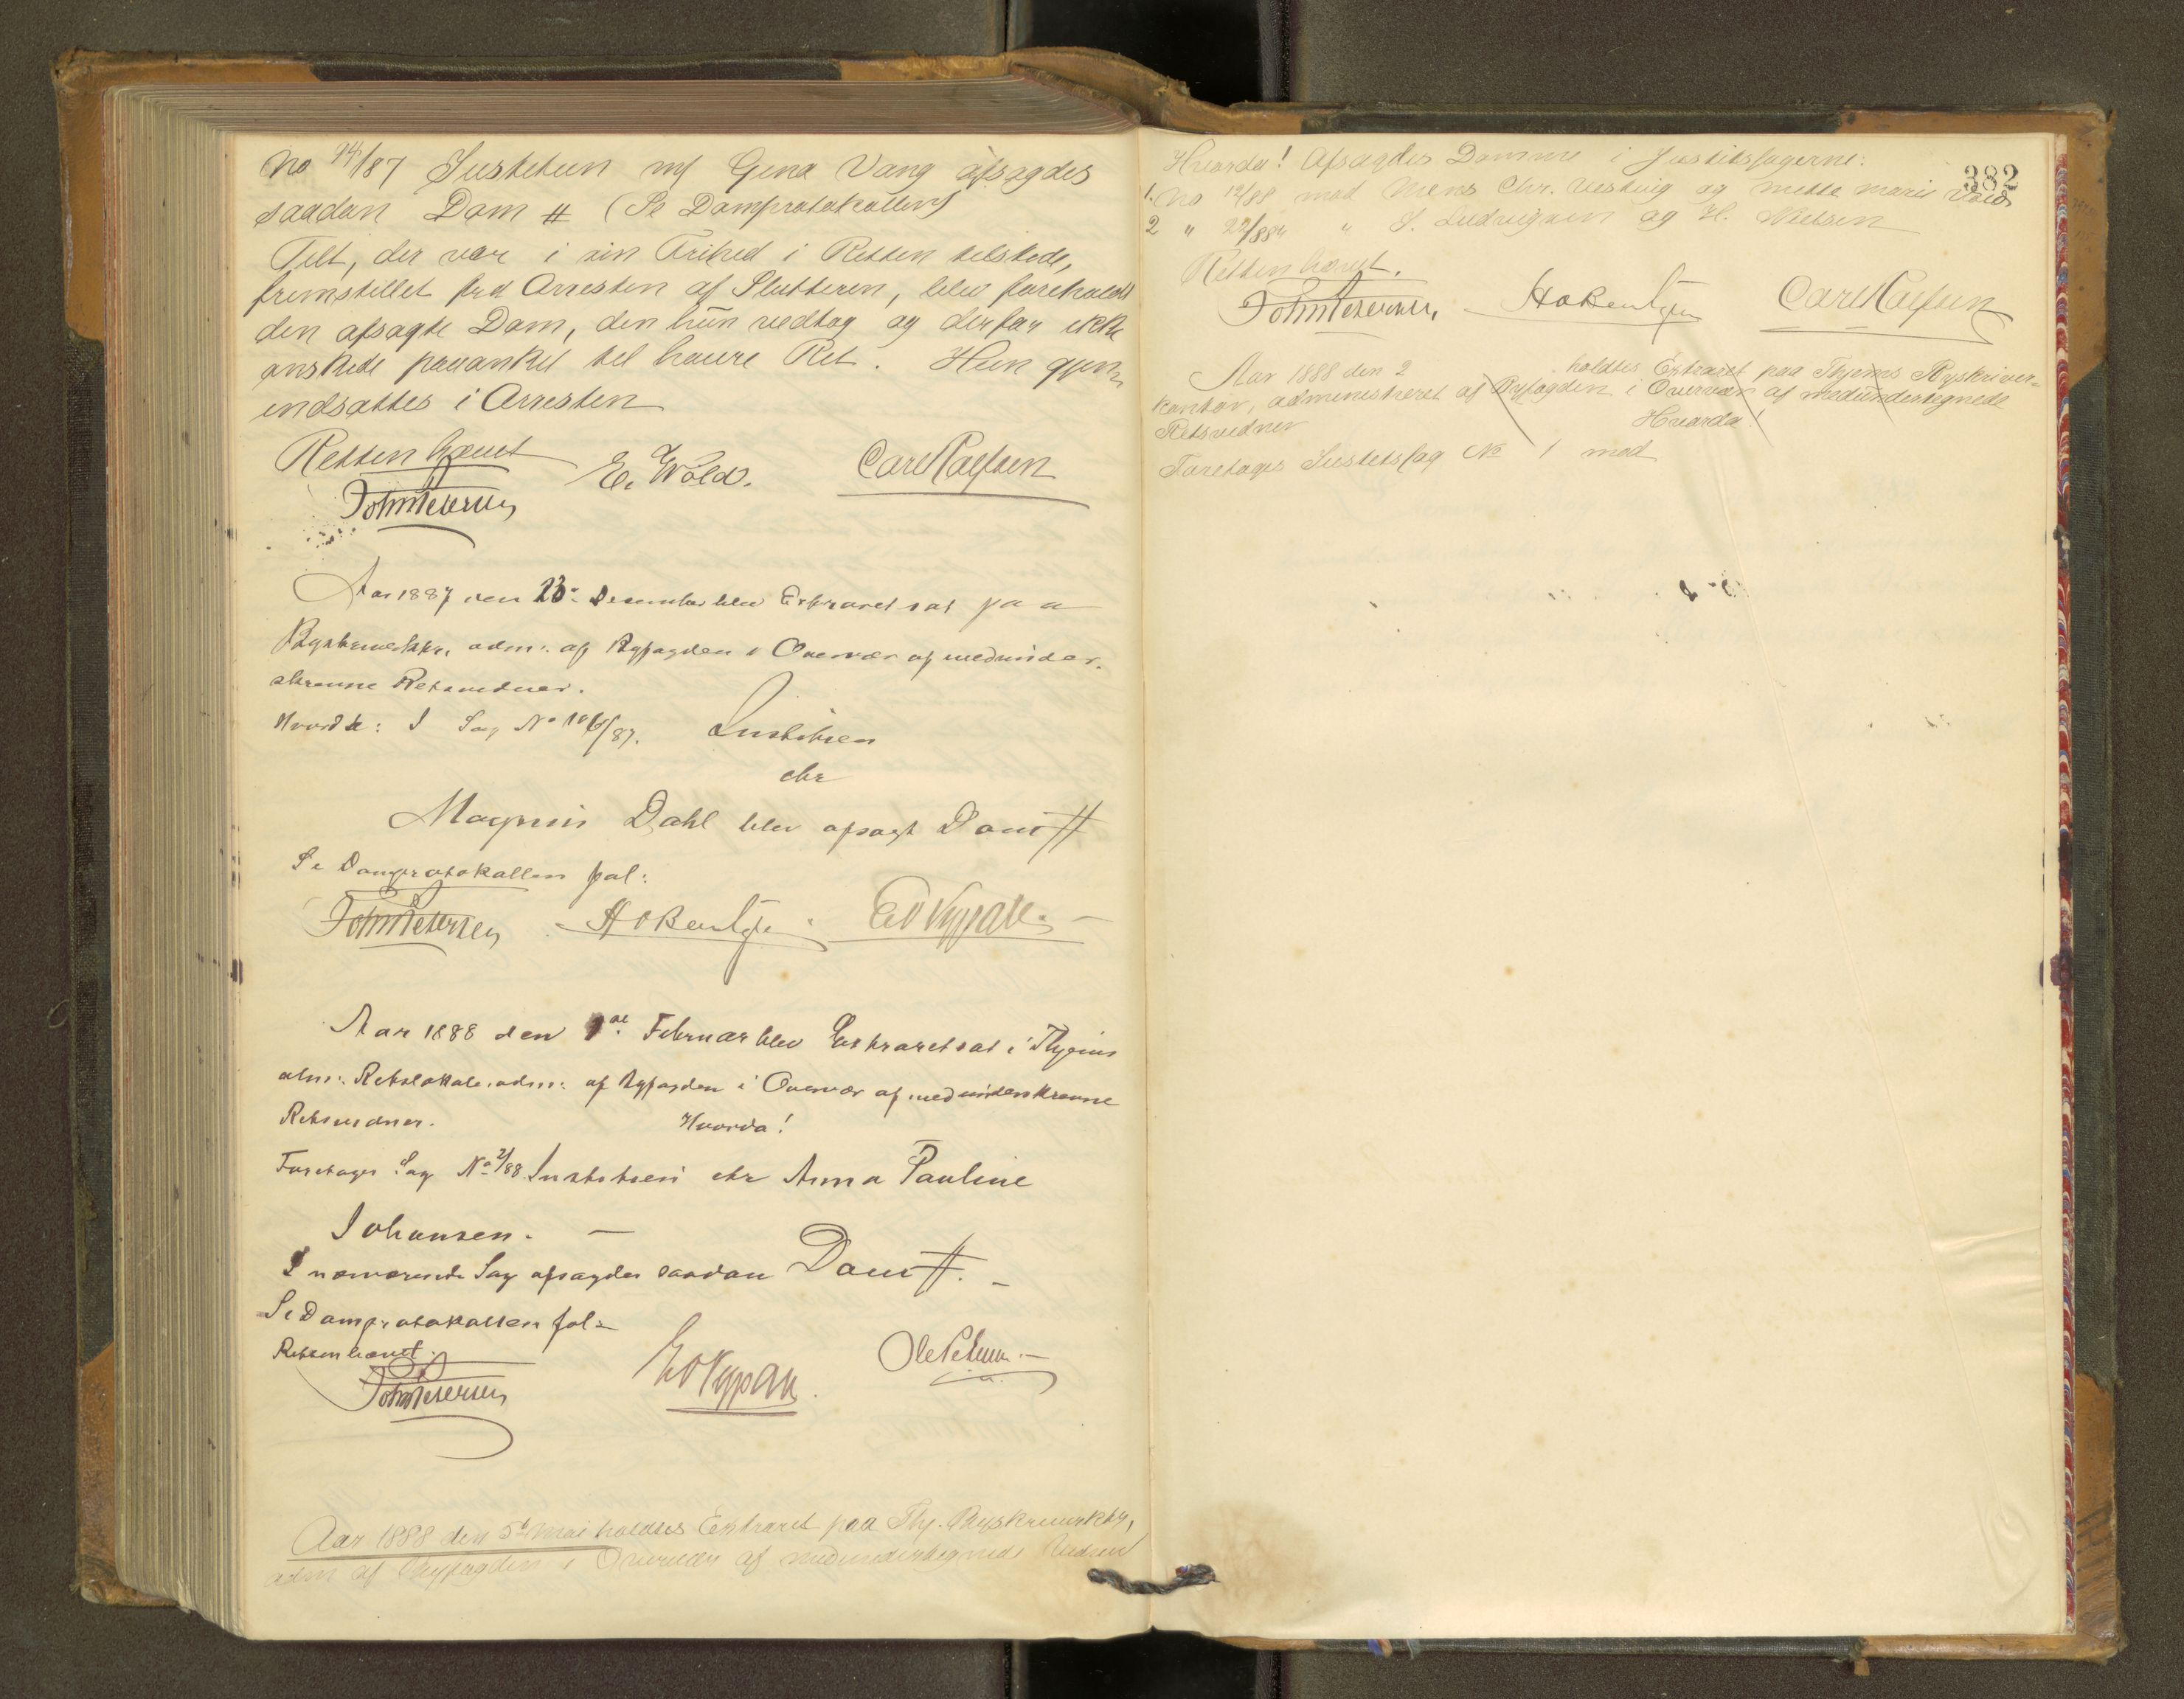 No 94/87 Justitien mod Gina Vang afsagdes
saadan Dom # (Se Domprotokollen)
Tilt, der var i sin Frihed i Retten tilstede,
fremstillet fra Arresten af Slutteren, blev foreholdt
den afsagte Dom, den hun vedtog og derfor ikke
önskede paaanket til höiere Ret. Hun gjen-
indsattes i Arresten
Retten hævet
John Petersen E. Wold. Carl Paulsen
Aar 1887 den 23. December blev Extraret sat paa
Byskriverktr, adm: af Byfogden i Overvær af medunder-
skrevne Retsvidner.
Hvorda: I Sag No 106/87. Justitien
ctr
Magnus Dahl blev afsagt Dom #
Se Domprotokollen fol:
John Petersen
Aar 1888 den 1ste Februar blev Extraret sat i Thjems
alm: Retslokale adm: af Byfogden i Overvær af medunderskrevne
Retsvidner. Hvorda!
Foretoges Sag No 2/88 Justitien ctr Anna Pauline
Johansen. —
I nærværende Sag afsagdes saadan Dom #. —
Se Domprotokollen fol:
Retten hævet.
John Petersen
Aar 1888 den 5te Mai holdtes Extraret paa Thj. Byskriverktr,
adm af Byfogden i Overvær af medundertegnede Vidner
382
Hvorda! Afsagdes Domme i Justitssagerne:
1. No 19/88 mod Mens Chr. Vesting og Mette Marie Vold
2 " 22/88 " " S. Ludvigsen og H. Nielsen
Retten hævet.
John Petersen Carl Paulsen
Aar 1888 den 2 holdtes Extraret paa Thjems Byskriver=
kontor, administreret af Byfogden i Overvær af medundertegnede
Retsvidner Hvorda!
Foretoges Justitssag No 1 mod